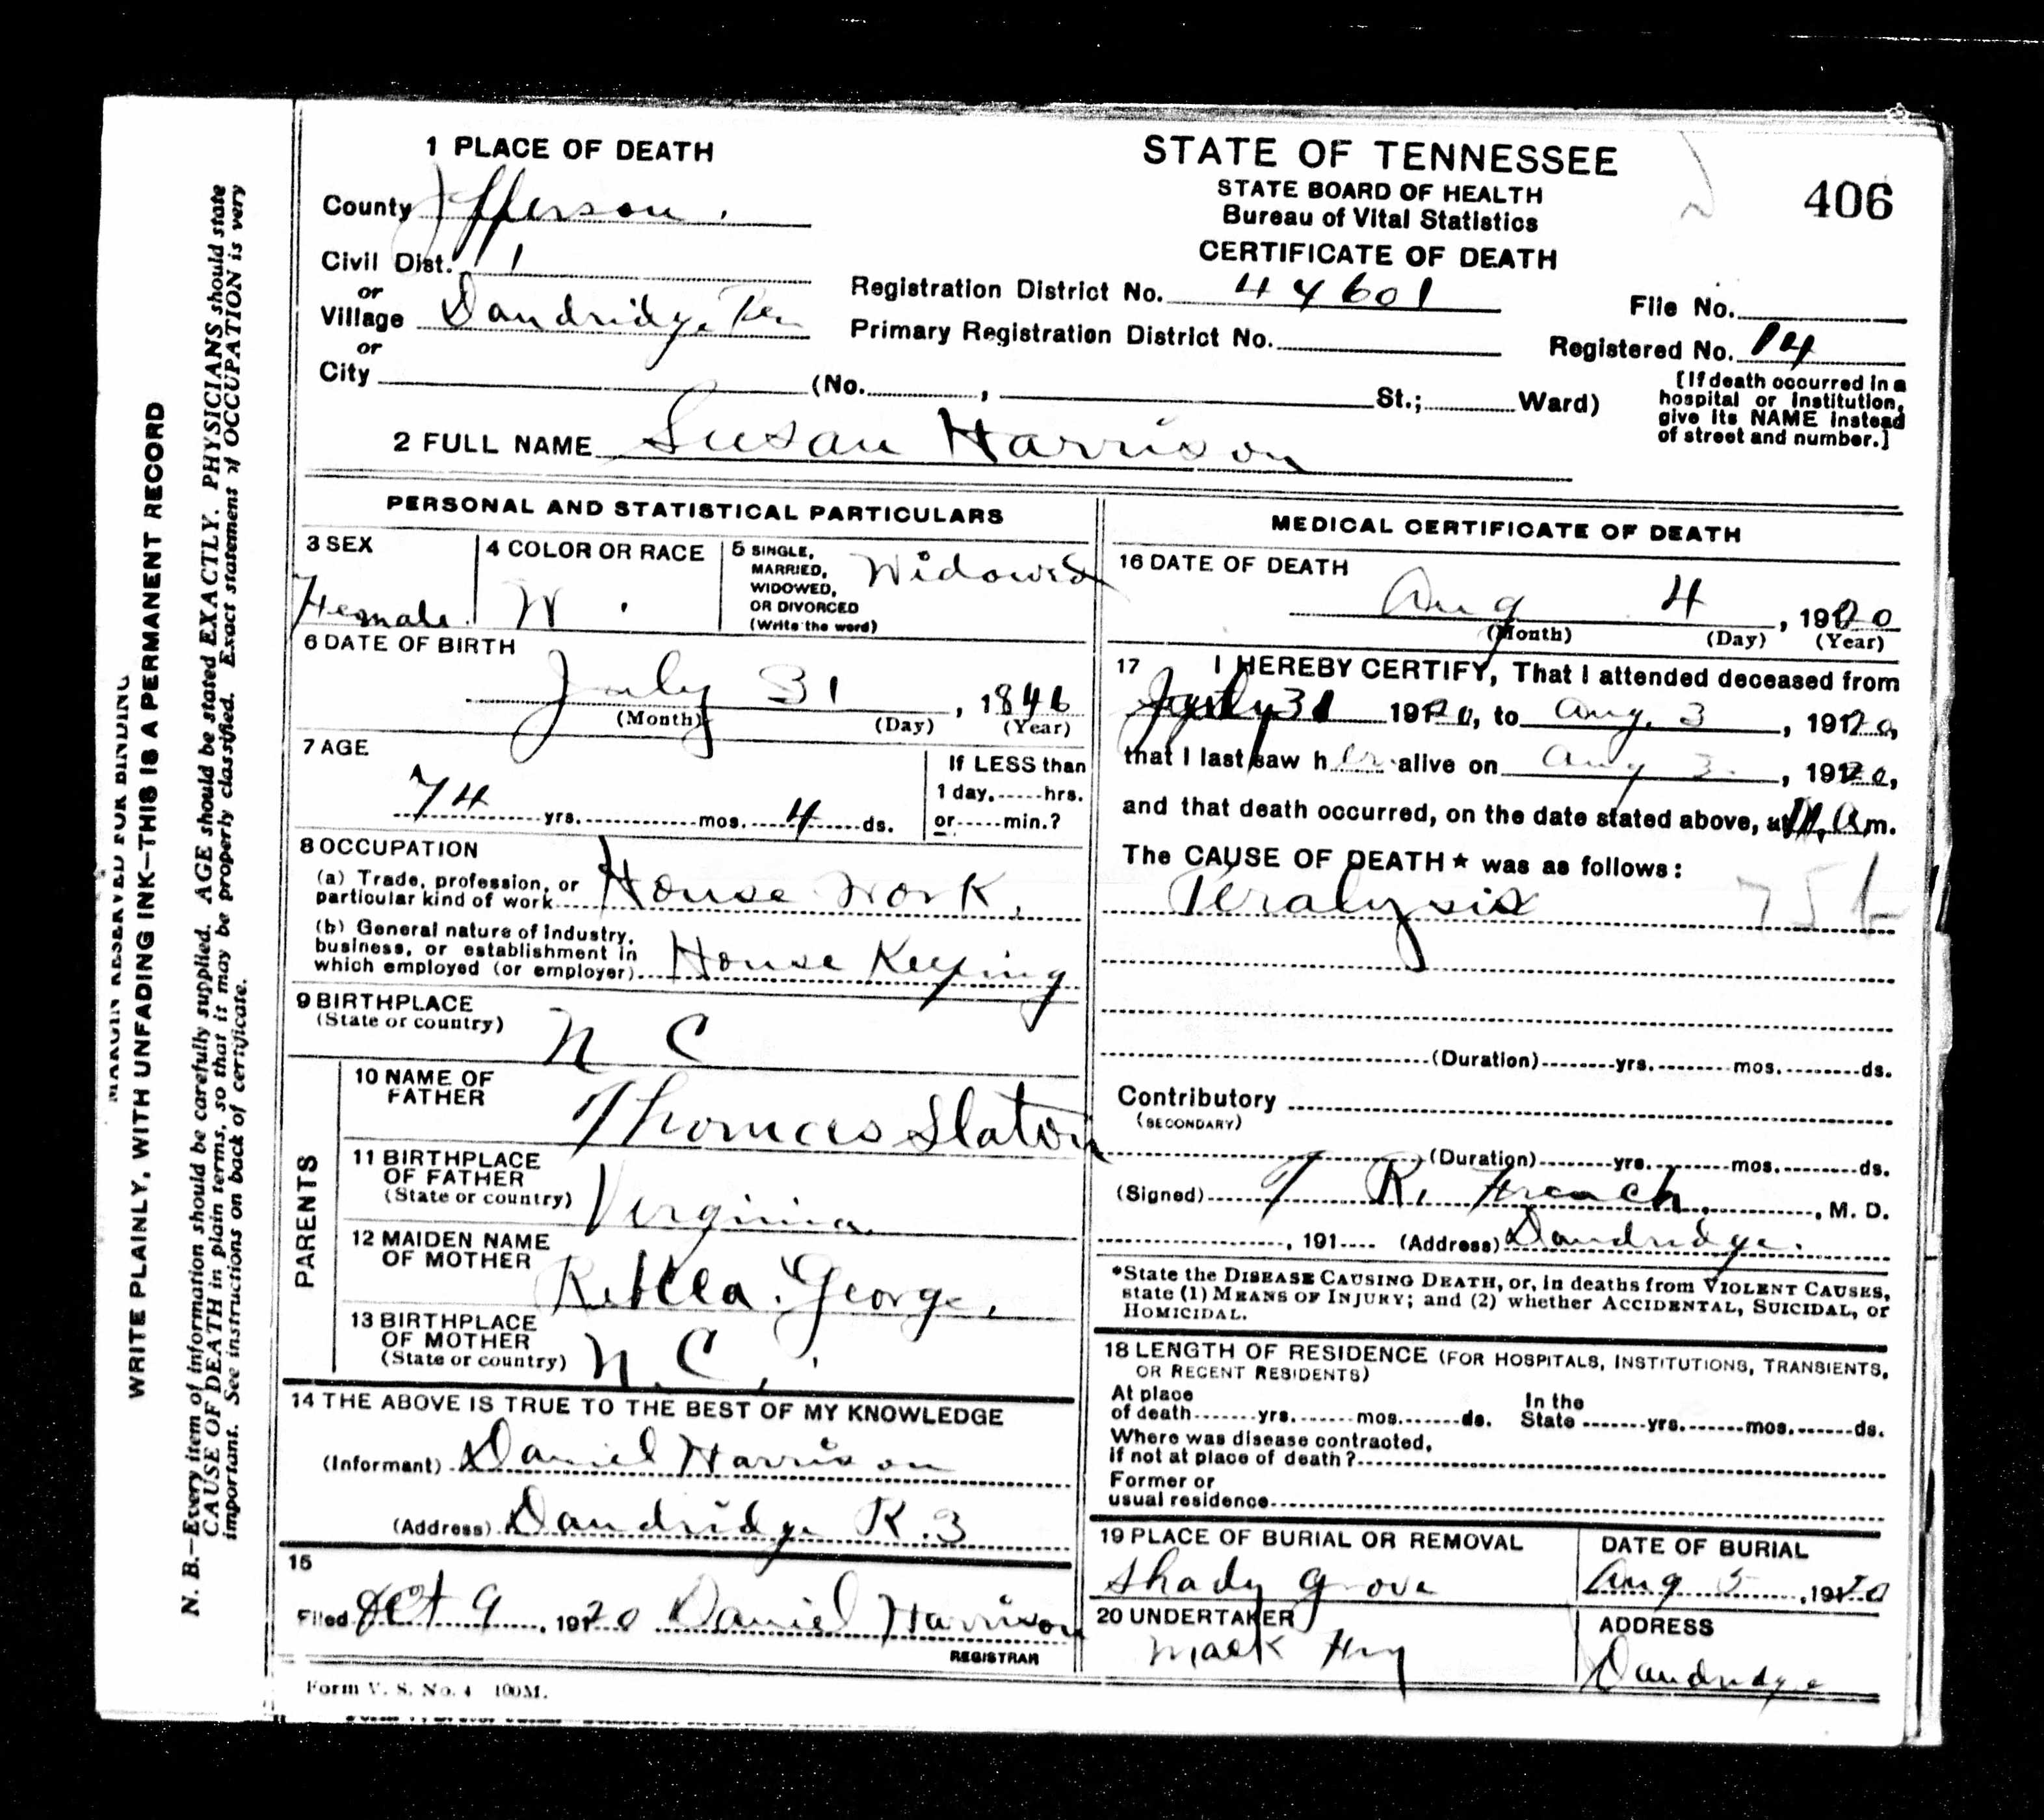 1 PLACE OF DEATH
County Jefferson.
Civil Dist. 11
or
Village Dandridge Ten
or
City (No. , St.; Ward)
STATE OF TENNESSEE
STATE BOARD OF HEALTH
Bureau of Vital Statistics
CERTIFICATE OF DEATH
406
Registration District No. 44601
File No.
Primary Registration District No.
Registered No. 14
[If death occurred in a
hospital or institution,
give its NAME instead
of street and number.]
2 FULL NAME Susan Harrison
PERSONAL AND STATISTICAL PARTICULARS
3 SEX
Female
4 COLOR OR RACE
W.
5 SINGLE,
MARRIED,
WIDOWED,
OR DIVORCED
(Write the word)
Widowed
6 DATE OF BIRTH
July 31, 1846
(Month) (Day) (Year)
7 AGE
74 yrs. mos. 4 ds.
If LESS than
1 day, hrs.
or min.?
8 OCCUPATION
(a) Trade, profession, or
particular kind of work House Work,
(b) General nature of industry,
business, or establishment in
which employed (or employer) House Keeping
9 BIRTHPLACE
(State or country) N C
PARENTS
10 NAME OF
FATHER
Thomas Slaton
11 BIRTHPLACE
OF FATHER
(State or country) Virginia
12 MAIDEN NAME
OF MOTHER
George,
13 BIRTHPLACE
OF MOTHER
(State or country) N. C,
14 THE ABOVE IS TRUE TO THE BEST OF MY KNOWLEDGE
(Informant) Daniel Harrison
(Address) Dandridge R. 3
15
Filed Oct 9, 1920 Daniel Harrison
REGISTRAR
Form V. S. No. 4 100M.
MEDICAL CERTIFICATE OF DEATH
16 DATE OF DEATH
Aug 4, 1920
(Month) (Day) (Year)
17 I HEREBY CERTIFY, That I attended deceased from
July 31 1920, to Aug. 3, 1920,
that I last saw her alive on Aug 3., 1920,
and that death occurred, on the date stated above, at m.
The CAUSE OF DEATH* was as follows:
Peralysis
(Duration) yrs. mos. ds.
Contributory
(SECONDARY)
(Duration) yrs. mos. ds.
(Signed) T R. French, M. D.
, 191 (Address) Dandridge.
*State the DISEASE CAUSING DEATH, or, in deaths from VIOLENT CAUSES,
state (1) MEANS OF INJURY; and (2) whether ACCIDENTAL, SUICIDAL, or
HOMICIDAL.
18 LENGTH OF RESIDENCE (FOR HOSPITALS, INSTITUTIONS, TRANSIENTS,
OR RECENT RESIDENTS)
At place
of death yrs. mos. ds.
In the
State yrs. mos. ds.
Where was disease contracted,
if not at place of death?
Former or
usual residence
19 PLACE OF BURIAL OR REMOVAL
Shady Grove
DATE OF BURIAL
Aug 5, 1920
20 UNDERTAKER
Mack
ADDRESS
Dandridge
MARGIN RESERVED FOR BINDING
WRITE PLAINLY, WITH UNFADING INK—THIS IS A PERMANENT RECORD
N. B.—Every item of information should be carefully supplied. AGE should be stated EXACTLY. PHYSICIANS should state
CAUSE OF DEATH in plain terms, so that it may be properly classified. Exact statement of OCCUPATION is very
important. See instructions on back of certificate.